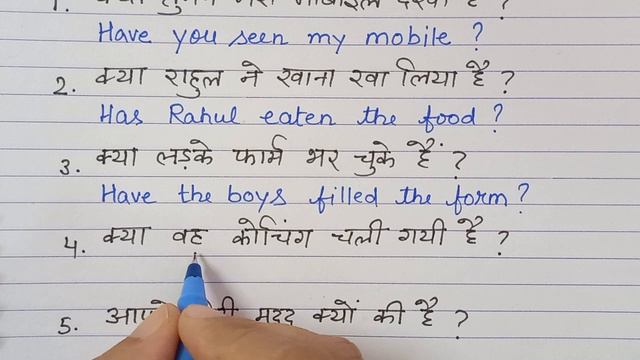 1. क्या तुमने मेरा मोबाइल देखा है ?
Have you seen my mobile ?
2. क्या राहुल ने खाना खा लिया है ?
Has Rahul eaten the food ?
3. क्या लड़के फार्म भर चुके हैं ?
Have the boys filled the form ?
4. क्या वह कोचिंग चली गयी है ?
5. मदद क्यों की है ?